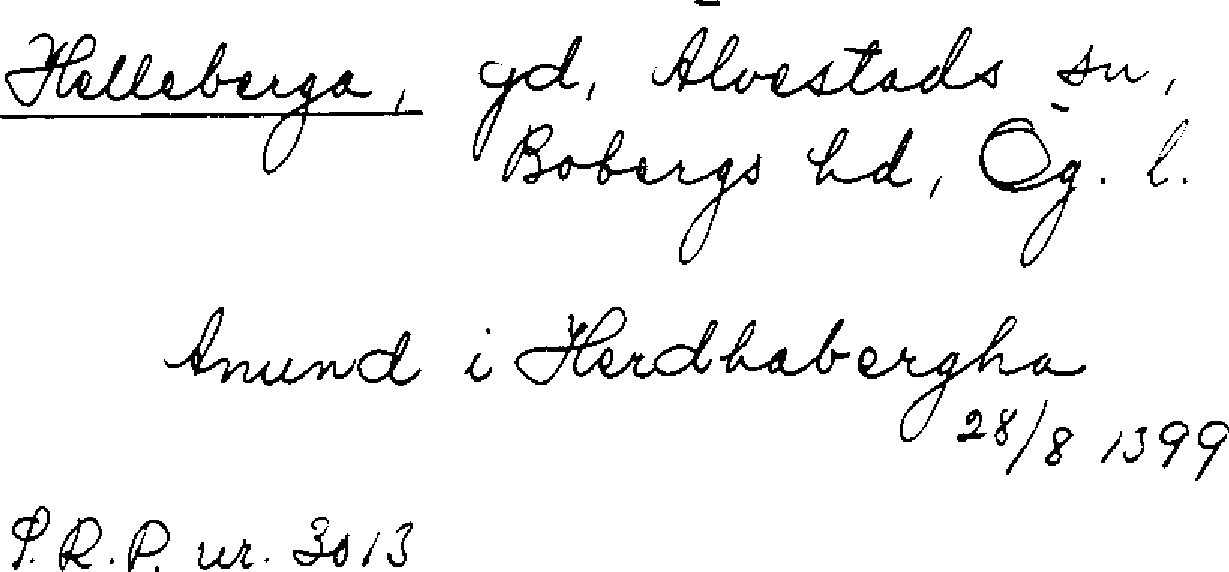 Helleberga, gd, Älvestads sn,
Bobergs hd, Ög. l.
Anund i Herdhabergha
28/8 1399
P.R.P. nr. 3013